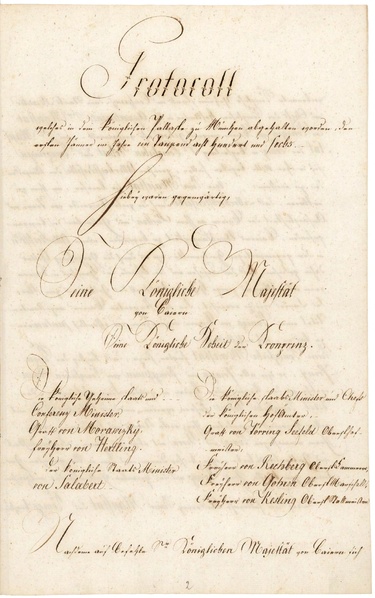 Protocoll
welches in dem königlichen Pallaste zu München abgehalten worden, den
ersten Jänner im Jahre ein Tausend acht Hundert und sechs.
Hiebey waren gegenwärtig,
Seine Königliche Majestät
von Baiern
Seine Königliche Hoheit der Kronprinz.
königliche Geheime Staats und
Conferenz Minister
Graf von Morawizky.
Freyherr von Hertling.
der königliche Staats Minister
von Salabert.
königliche Staats Minister und Chefs
der königlichen Hofämter.
Graf von Törring Seefeld Oberst Hof-
meister,
Freyherr von Rechberg Oberst Kämmerer,
Freyherr von Gohren Oberst Marschall,
Freyherr von Kesling Oberst Stallmeister
Nachdeme auf Befehl Königlichen Majestät von Baiern sich
2